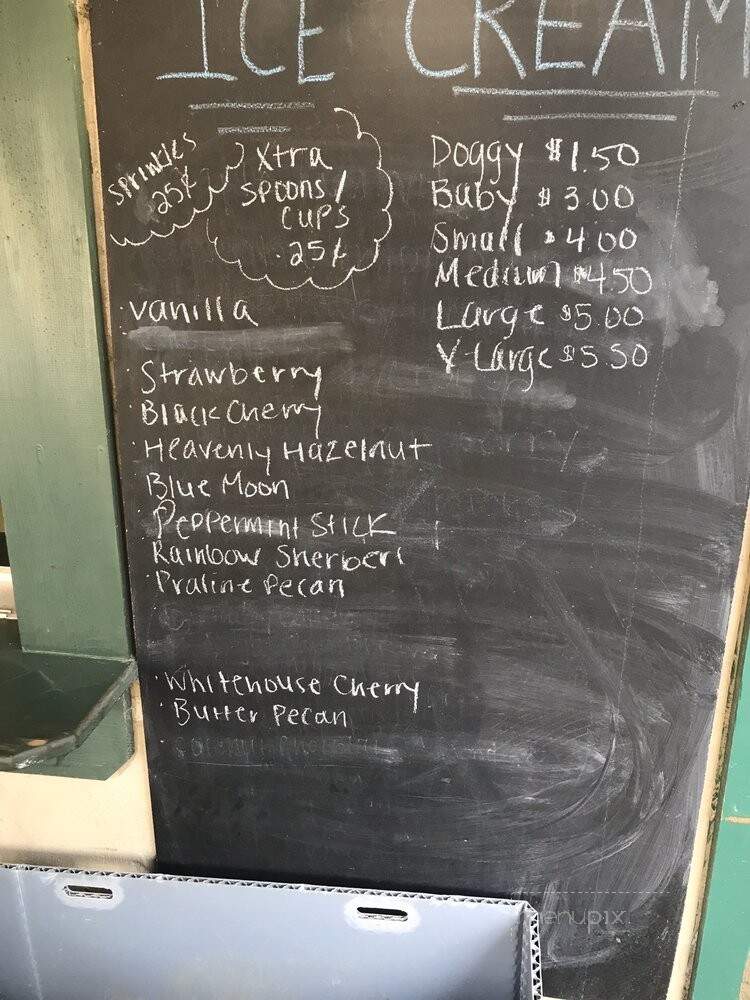 ICE CREAM
sprinkles
25¢
Xtra
spoons/
cups
.25¢
Doggy $1.50
Baby $3.00
Small $4.00
Medium $4.50
Large $5.00
X-Large $5.50
·vanilla
·Strawberry
·Black Cherry
·Heavenly Hazelnut
·Blue Moon
·Peppermint Stick
·Rainbow Sherbert
·Praline Pecan
·Whitehouse Cherry
·Butter Pecan
menupix